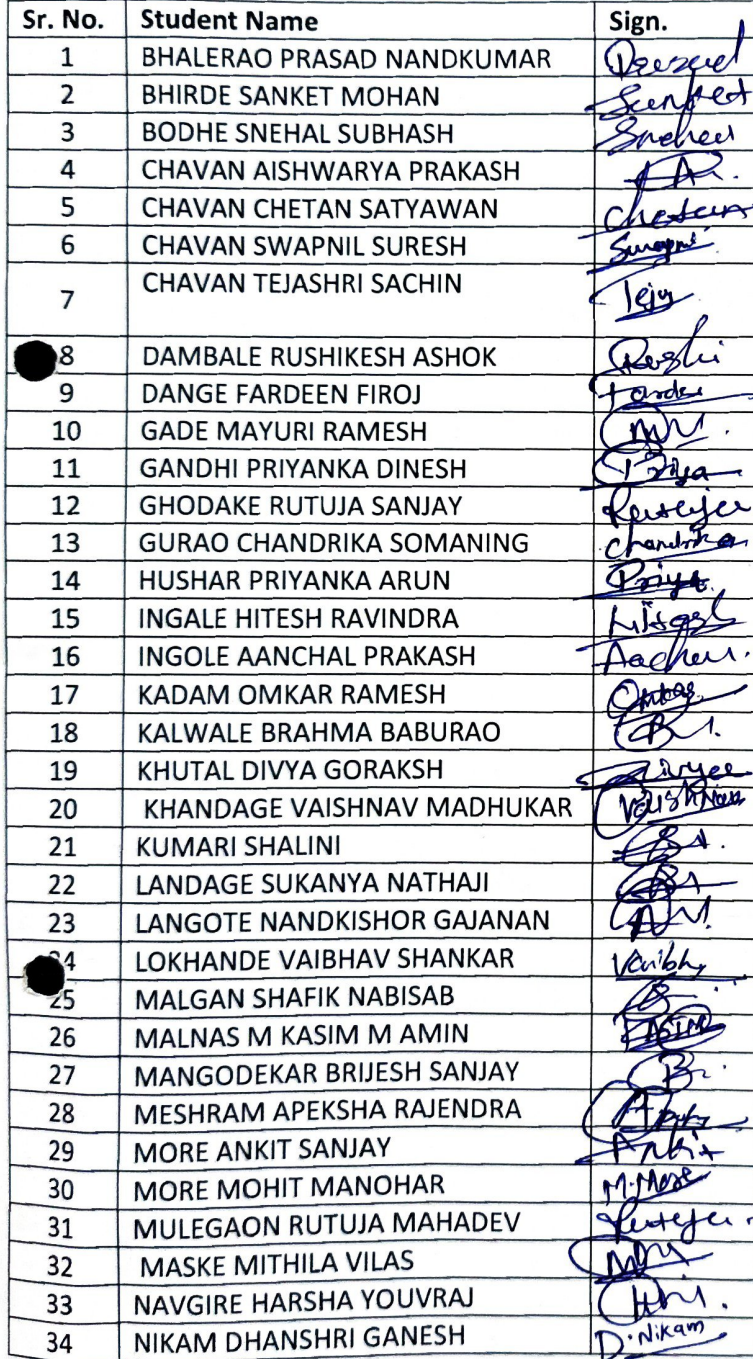 Sr. No. Student Name Sign.
1 BHALERAO PRASAD NANDKUMAR Prasad
2 BHIRDE SANKET MOHAN Sanket
3 BODHE SNEHAL SUBHASH Snehal
4 CHAVAN AISHWARYA PRAKASH
5 CHAVAN CHETAN SATYAWAN Chetan
6 CHAVAN SWAPNIL SURESH Swapnil
7 CHAVAN TEJASHRI SACHIN Teju
8 DAMBALE RUSHIKESH ASHOK Rushi
9 DANGE FARDEEN FIROJ
10 GADE MAYURI RAMESH
11 GANDHI PRIYANKA DINESH Priya
12 GHODAKE RUTUJA SANJAY Rutuja
13 GURAO CHANDRIKA SOMANING Chandrika
14 HUSHAR PRIYANKA ARUN Priya
15 INGALE HITESH RAVINDRA Hitesh
16 INGOLE AANCHAL PRAKASH
17 KADAM OMKAR RAMESH Omkar
18 KALWALE BRAHMA BABURAO
19 KHUTAL DIVYA GORAKSH Divya
20 KHANDAGE VAISHNAV MADHUKAR Vaishnav
21 KUMARI SHALINI
22 LANDAGE SUKANYA NATHAJI
23 LANGOTE NANDKISHOR GAJANAN
24 LOKHANDE VAIBHAV SHANKAR
25 MALGAN SHAFIK NABISAB
26 MALNAS M KASIM M AMIN KASIM
27 MANGODEKAR BRIJESH SANJAY
28 MESHRAM APEKSHA RAJENDRA
29 MORE ANKIT SANJAY Ankit
30 MORE MOHIT MANOHAR M.More
31 MULEGAON RUTUJA MAHADEV Rutuja
32 MASKE MITHILA VILAS
33 NAVGIRE HARSHA YOUVRAJ
34 NIKAM DHANSHRI GANESH D.Nikam